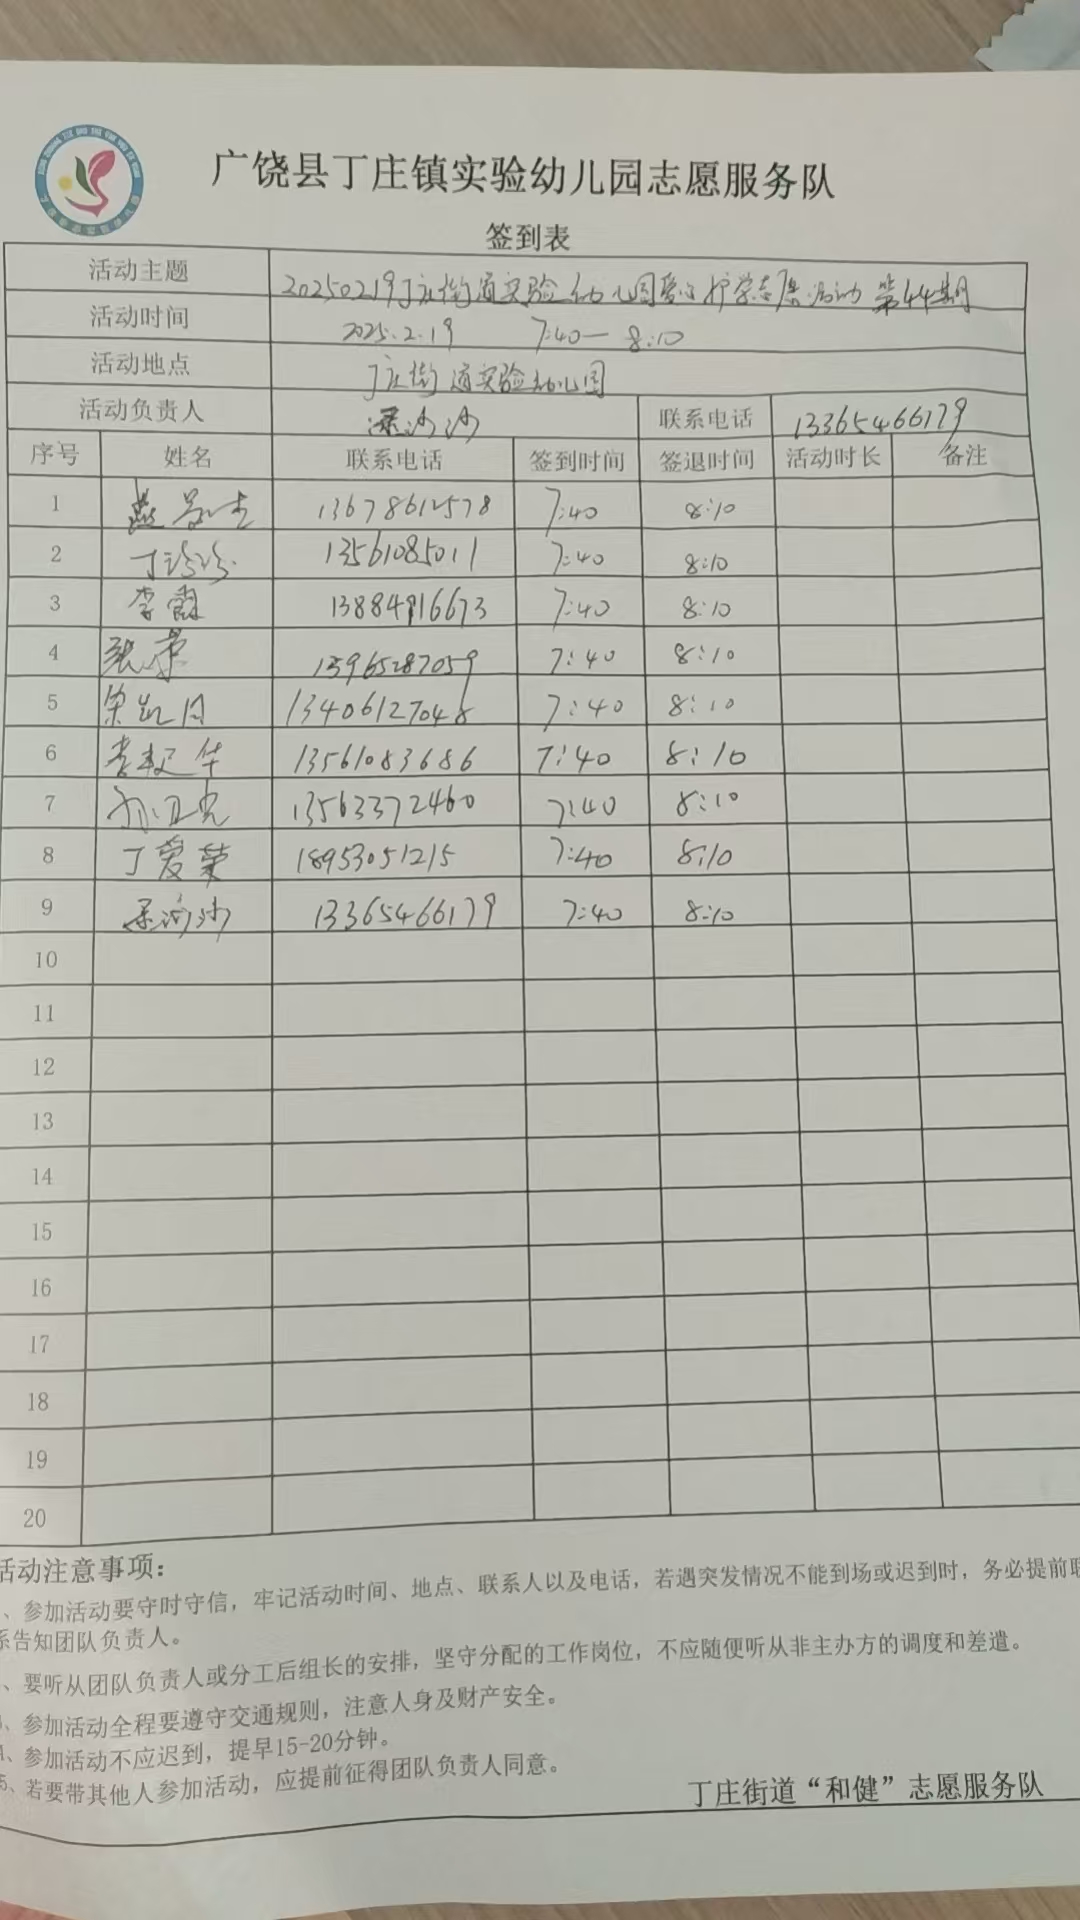 广饶县丁庄镇实验幼儿园志愿服务队
签到表
活动主题 20250219丁庄街道实验幼儿园爱心护学志愿活动 第44期
活动时间 2025.2.19 7:40—8:10
活动地点 丁庄街道实验幼儿园
活动负责人 梁沙沙 联系电话 13365466179
序号 姓名 联系电话 签到时间 签退时间 活动时长 备注
1 13678612578 7:40 8:10
2 丁珍珍 13561085011 7:40 8:10
3 李霞 13884916673 7:40 8:10
4 张荣 13965287059 7:40 8:10
5 13406127048 7:40 8:10
6 13561083686 7:40 8:10
7 13563372460 7:40 8:10
8 丁爱荣 18953051215 7:40 8:10
9 梁沙沙 13365466179 7:40 8:10
10
11
12
13
14
15
16
17
18
19
20
活动注意事项：
、参加活动要守时守信，牢记活动时间、地点、联系人以及电话，若遇突发情况不能到场或迟到时，务必提前联
系告知团队负责人。
、要听从团队负责人或分工后组长的安排，坚守分配的工作岗位，不应随便听从非主办方的调度和差遣。
、参加活动全程要遵守交通规则，注意人身及财产安全。
、参加活动不应迟到，提早15-20分钟。
5、若要带其他人参加活动，应提前征得团队负责人同意。
丁庄街道“和健”志愿服务队